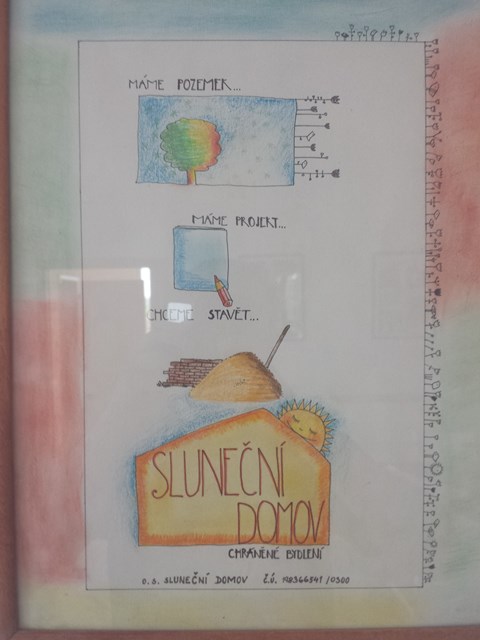 MÁME POZEMEK...
MÁME PROJEKT...
CHCEME STAVĚT...
SLUNEČNÍ
DOMOV
CHRÁNĚNÉ BYDLENÍ
O.S. SLUNEČNÍ DOMOV Č.Ú. /0300